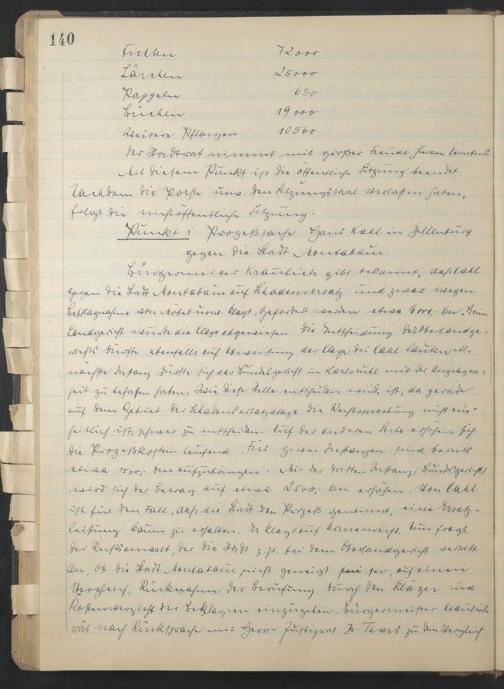 140
Fichten 72000
Lärchen 25000
Pappeln 650
Buchen 19000
Weitere Pflanzen 10560
Der Stadtrat nimmt mit großer Freude hiervon Kenntnis.
Mit diesem Punkt ist die öffentliche Sitzung beendet.
Nachdem die Presse usw. den Sitzungssaal verlassen haben,
folgt die nichtöffentliche Sitzung.
Punkt 1 Prozeßsache Hans Kahl in Dillenburg
gegen die Stadt Montabaur
Bürgermeister Kraulich gibt bekannt, daß Kahl
gegen die Stadt Montabaur auf Schadensersatz und zwar wegen
Beschlagnahme von Möbel usw. klagt. Gefordert werden etwa Beim
Landgericht wurde die Klage abgewiesen. Die Entscheidung des Oberlandge-
richts dürfte ebenfalls auf Abweisung der Klage des Kahl lauten. Als
nächste Instanz dürfte sich das Bundesgericht in Karlsruhe mit der Angelegen-
heit zu befassen haben. Wie diese Stelle entscheiden wird, ist, da gerade
auf dem Gebiet der Schadensersatzklage die Rechtsprechung nicht ein-
heitlich ist, schwer zu entscheiden. Auf der anderen Seite erhöhen sich
die Prozeßkosten laufend. Für zwei Instanzen sind bereits
etwa 1500,- DM aufzubringen. Mit der dritten Instanz (Bundesgericht)
wird sich der Betrag auf etwa 2500,- DM erhöhen. Von Kahl
ist für den Fall, daß die Stadt den Prozeß gewinnt, eine Ersatz-
leistung kaum zu erhalten. Er klagt auf Armenrecht. Nun fragt
der Rechtsanwalt, der die Stadt z.Zt. bei dem Oberlandgericht vertritt
an, ob die Stadt Montabaur nicht geneigt sei, auf einen
Vergleich, Rücknahme der Berufung durch den Kläger und
Kostenverzicht der Beklagten einzugehen. Bürgermeister Kraulich
rät nach Rücksprache mit Herrn Justizrat Dr. zu dem Vergleich